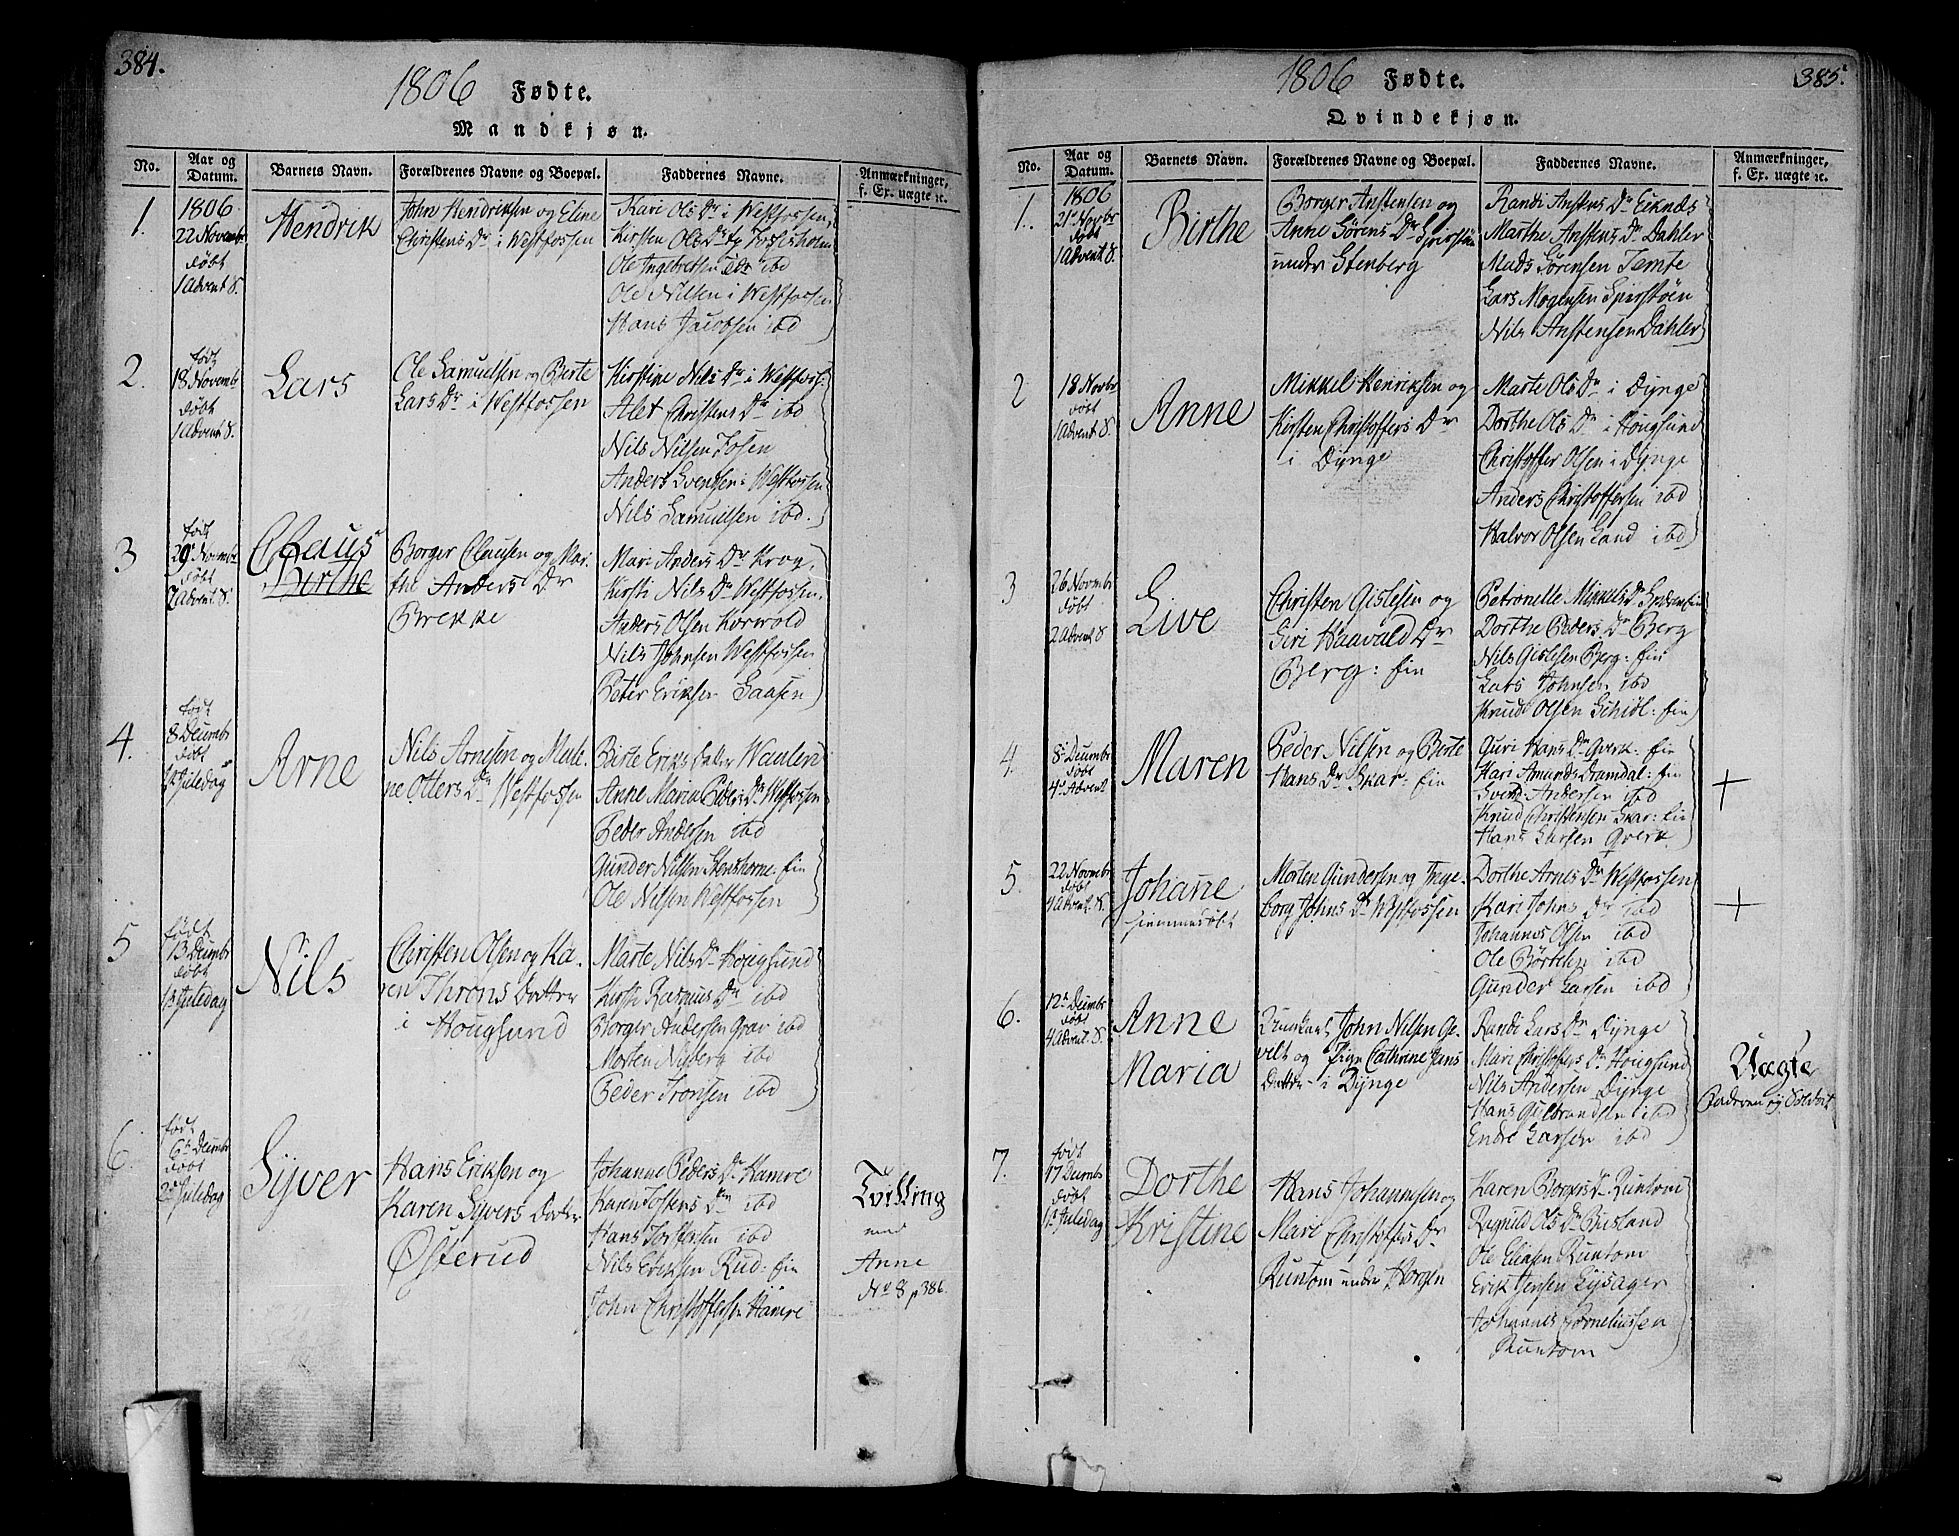 384.
1806 Fødte.
Mandkjøn.
No.
Aar og Datum.
Barnets Navn.
Forældrenes Navne og Boepæl.
Faddernes Navne.
Anmærkninger, f. Ex. uægte ec.
1.
1806
22 Novembr
døbt
1 Advent S.
Hendrik
John Hendriksen og Eline
Christens Dr i Westfossen
Kari Ols Dr i Westfossen,
Kirsten Ols Dr Fossesholm
Ole Ingebretsen ibd
Ole Nilsen i Westfossen
Hans Jacobsen ibd
2.
født
18 Novembr
døbt
1 Advent S.
Lars
Ole Samuelsen og Berte
Lars Dr i Westfossen
Kirstine Nils Dr i Westfoss:
Alet Christens Dr ibd
Nils Nilsen Fosen
Anders Svendsen i Westfossen
Nils Samuelsen ibd.
3
født
29 Novembr
døbt
2 Advent S.
Claus
Birthe
Borger Clausen og Mar-
the Anders Dr
Brekke
Mari Anders Dr Krog,
Kirsti Nils Dr Westfossen.
Anders Olsen Korwold
Nils Johnsen Westfossen
Peter Eriksen Gaasen
4.
født
8 Decembr
døbt
1st Juledag
Arne
Nils Arnesen og Male-
ne Otters Dr Westfossen
Birte Eriks datter Waalen
Anne Maria Peders Dr Westfossen
Peder Andersen ibd
Gunder Nilsen Stenshorne. fin
Ole Nilsen Westfossen
5
født
13 Decembr
døbt
1st Juledag
Nils
Christen Olsen og Ka-
ren Throns datter
i Hougsund
Marte Nils Dr Hougsund
Kirsti Rasmus Dr ibd
Borger Andersen Grav ibd
Morten Nyberg ibd
Peder Tronsen ibd
6.
født
6te Decembr
døbt
2d Juledag
Syver
Hans Eriksen og
Karen Syvers datter
Østerud
Johanne Peders Dr Hamre
Karen Tostens Dr ibd
Hans Tostensen ibd
Nils Eriksen Rud: fin
John Christoffersen Hamre
Tvilling
med
Anne
No 8 p 386.
385.
1806 Fødte.
Qvindekjøn.
No.
Aar og Datum.
Barnets Navn.
Forældrenes Navne og Boepæl.
Faddernes Navne.
Anmærkninger, f. Ex. uægte ec.
1.
1806
21 Novbr
født
1 Advent S.
Birthe
Borger Anstensen og
Anne Sørens Dr
under Stenberg
Randi Anstens Dr Eiknæs
Marthe Anstens Dr Dahler
Mads Sørensen Temte
Lars Mogensen Speirstøen
Nils Anstensen Dahler
2
18 Novbr
døbt
1 Advent S.
Anne
Mikkel Henriksen og
Kirsten Christoffers Dr
i Dynge
Marte Ols Dr i Dynge
Dorthe Ols Dr i Hougsund
Christoffer Olsen i Dynge
Anders Christoffersen ibd
Halvor Olsen Sand ibd
3
26 Novembr
døbt
2 Advent S
Live
Christen Gislesen og
Siri Haavald Dr
Berg: fin
Petronelle Mikkels Dr
Dorthe Peders Dr Berg
Nils Gislesen Berg: fin
Lars Johnsen ibd
Knud Olsen Schiøl: fin
4.
8 Decembr
døbt
4 Advent
Maren
Peder Nilsen og Berte
Hans Dr Skar: fin
Guri Hans Dr Qverk: fin
Kari Amunds Dramdal: fin
Svend Andersen ibd
Knud Christensen Skar: fin
Hans Larsen Qverk
5.
22 Novembr
døbt
4 Advent. S.
Johane
hjemmedøbt
Morten Gundersen og Inge-
borg Johns Dr Westfossen
Dorthe Arnes Dr Westfossen
Kari Johns Dr ibd
Johannes Olsen ibd
Ole Børtelsn ibd
Gunder Larsen ibd
6.
12 Decembr
døbt
4 Advent. S.
Anne
Maria
Ungkarl John Nilsen Ge-
velt og Pige Cathrine Jans
datter i Dynge
Randi Lars Dr Dynge
Mari Christoffers Dr Hougsund
Nils Andersen Dynge
Hans Gulbrandsen ibd
Endre Larsen ibd
Uægte
Faderen og Soldat
7.
født
17 Decembr
døbt
1st Juledag
Dorthe
Kristine
Hans Johannesen og
Mari Christoffers Dr
Runtom under Horgen
Karen Borgers Dr Runtom
Ragnild Ols Dr Busland
Ole Eliasen Runtom
Erik Jensen Lysager
Johannes Corneliussen
Runtom